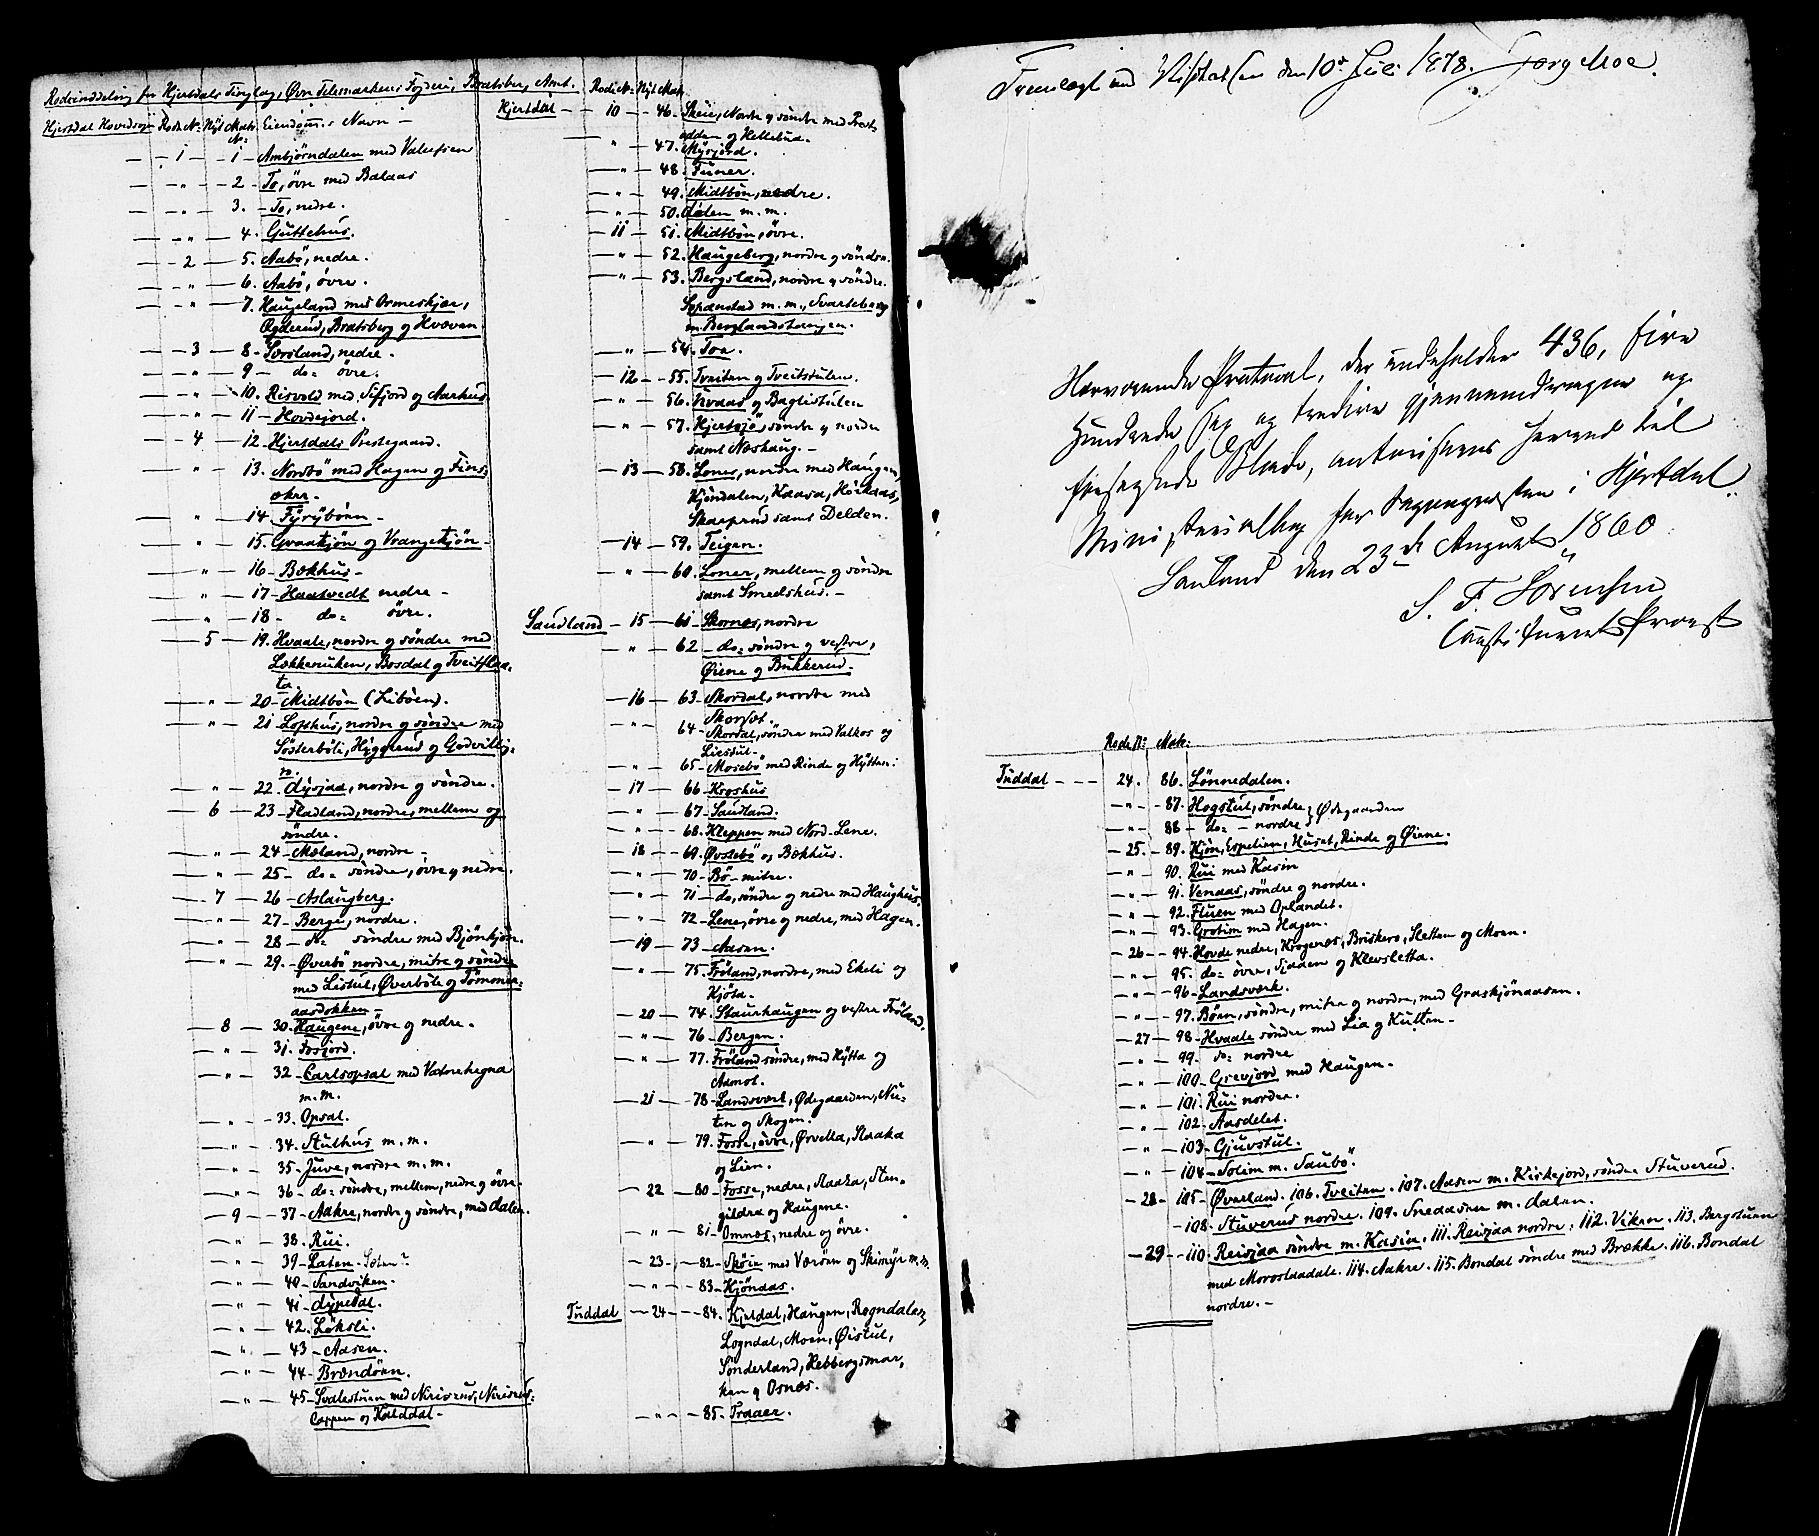 Rodeinddeling for Hjertdals Tinglag, Øvre Telemarkens Fogderi, Bratsberg Amt.
Hjertdal Hovedsogn Rode No: Nyt Matr. No: Eiendom: s Navn -
1 - 1 - Ambjørndalen med
" - 2 - To, øvre med Balaas
" - 3. - To, nedre.
" - 4. Guttehus.
2 - 5. Aabö, nedre.
" - 6. Aabö, övre.
" - 7. Haugeland med Ormeskjær,
Ogderud, Bratsberg og Hvæven
3 - 8 - Sorsland, nedre.
" - 9 - do= övre.
" - 10. Risvold med Sifjord og Aarhus
" - 11 - Hovdejord.
4 - 12 - Hjertdals Prestegaard.
" - 13. Nordbö med Hagen og Fins=
aker.
" - 14. Tyrybøen -
" - 15. Graatjön og Vrangetjön -
" - 16 - Bækhus -
" - 17 - Haatvedt nedre -
" - 18 - do= övre.
5 - 19. Hvaale, nordre og söndre med
Løkkerniken, Bosdal og Tveitflaa=
ta.
" - 20 - Midtbön (Liböen).
" - 21 Lofthus, nordre og söndre med
Sösterböli, Hyggerud og Godvillig=
n.
" - 22. Lysjaa, nordre og söndre.
6 - 23 - Fladland, nordre, mellem og
söndre.
" - 24 - Mæland, nordre -
" - 25 - do= söndre, övre og nedre.
7 - 26 - Aslaugberg.
" - 27 - Berge, nordre.
" - 28 - do= söndre med Bjönkjön.
" - 29. - Øverbö nordre, mitre og söndre
med Listul, Øverböle og Tömmer=
aasdokken -
8 - 30. Haugene, övre og nedre.
" - 31. Fosjord.
" - 32 - Carlsopsal med Vatnehegna
m.m.
" - 33. Opsal.
" - 34. Stulhus m.m.
" - 35 - Juve, nordre m.m.
" - 36 - do= söndre, mellem, nedre og övre.
9 - 37 - Aakre, nordre og söndre, med Dalen
" - 38. Rui.
" - 39 - Laten - Sæten?
" - 40 - Sandviken.
" - 41 - Lynedal.
" - 42. Löksli.
" - 43 - Aasen.
" - 44 - Brændöen.
" - 45 - Svalestuen med Nirisrud, Nirisrud=
Cappen og Kalddal -
Rode No: Nyt Matr.
Hjertdal - 10 - 46 - Skeie, Nordre og söndre med Prest=
odden og Hellebud.
" - 47. Myrjord.
" - 48. Funer.
" - 49. Midtbön, nedre.
" - 50. Dalen m.m.
11 - 51. Midtbön, övre.
" - 52. Haugeberg, nordre og söndre.
" - 53. Bergsland, nordre og söndre.
Spænstad m.m., Svarteberg
m. Berglandstangen.
" - 54. Tou.
12 - 55. Tveiten og Tveitstulen.
" - 56. Kvaas og Baglistulen
" - 57. Hjertsjö, söndre og nordre
samt Næshaug. -
13 - 58. Loner, nordre med Haugen,
Kjöndalen, Kaasa, Hörkaas,
Skarprud samt Delden.
14 - 59. Teigen.
" - 60. Loner, mellem og söndre
samt Smedshus. -
Saudland - 15 - 61 - Skornes, nordre
" - 62 - do= söndre og vestre,
Øiene og Bukkerud.
16 - 63 - Skordal, nordre med
Skorset.
" - 64 - Skordal, söndre med Valkos og
Liestul -
" - 65 - Mosebö med Rinde og Hytten.
17 - 66 - Kroshus
" - 67 - Saudland.
" - 68. Kleppen med Nord-Lene.
18 - 69. Øvstebö og Bækhus.
" - 70 - Bö - mitre.
" - 71 - do, söndre og nedre med Haughus.
" - 72. Lene, övre og nedre, med Hagen.
19 - 73 - Aasen.
" - 75. Fröland, nordre, med Ekeli og
Hjöta.
20 - 74. Staurhaugen og vestre Fröland.
" - 76 - Bergen.
" - 77. Fröland söndre, med Hytta og
Aamot.
21 - 78 - Landsverk, Ødegaarden, Nu=
ten og Skogen.
" - 79. Fosse, övre, Ørvella, Slaaka
og Lien.
22 - 80 - Fosse, nedre, Slaaka, Sten=
gildra og Haugene.
" - 81 - Omnæs, nedre og övre.
23 - 82 - Sköie med Værsön og Skimyr m.m.
" - 83 - Kjöndaas.
Tuddal - 24 - 84. Kjeldal, Haugen, Rogndalen,
Logndal, Moen, Øistul,
Sönderland, Hebbergsmar=
ken og Osnæs.
" - 85. Traaer.
Fremlagt ved Visitatsen den 10de Juli 1878. Jørg. Moe.
Nærværende Protocol, der indeholder 436, fire
Hundrede sex og tredive gjennemdragne og
foliserede Blade, autoriseres herved til
Ministerialbog for Sognepresten i Hjertdal.
Sauland den 23de August 1860
S. F. Sörensen
Constitueret Provst
Rode No: Matr:
Tuddal - - - 24. 86. Lönnedalen.
" - 87. Hogstul, söndre } Ødegaarden
" - 88 - do= - nordre
25 - 89. Kjön, Espelien, Huset, Rinde og Øiene.
" - 90. Rui med Kasin
" - 91. Vendaas, söndre og nordre.
" - 92. Fluen med Oplandet.
" - 93. Grotim med Hagen.
26 - 94. Hovde nedre, Krogenæs, Briskero, Sletten og Moen.
" - 95. do= övre, Sjaaen og Klevsletta.
" - 96 - Landsverk.
" - 97. Böen, söndre, mitre og nordre, med Graskjönaasen.
27 - 98 - Hvaale söndre med Lia og Kutten -
" - 99. do= nordre
" - 100 - Grevjord med Haugen -
" - 101. Rui nordre.
" - 102 - Aasdelet.
" - 103 - Gjuvstul.
" - 104 - Solim m. Saubö.
28 - 105 - Øverland. 106. Tveiten. 107. Aasen m. Kirkejord, söndre Stuverud.
- 108. Stuverud nordre. 109. Snedaasen m. Dalen.
29 - 110. Reisjaa söndre m. Kasin. 111. Reisjaa nordre. 112. Viken. 113. Bergstuen
med Morostaadale. 114. Aakre. 115. Bondal söndre med Brække. 116. Bondal
nordre. -